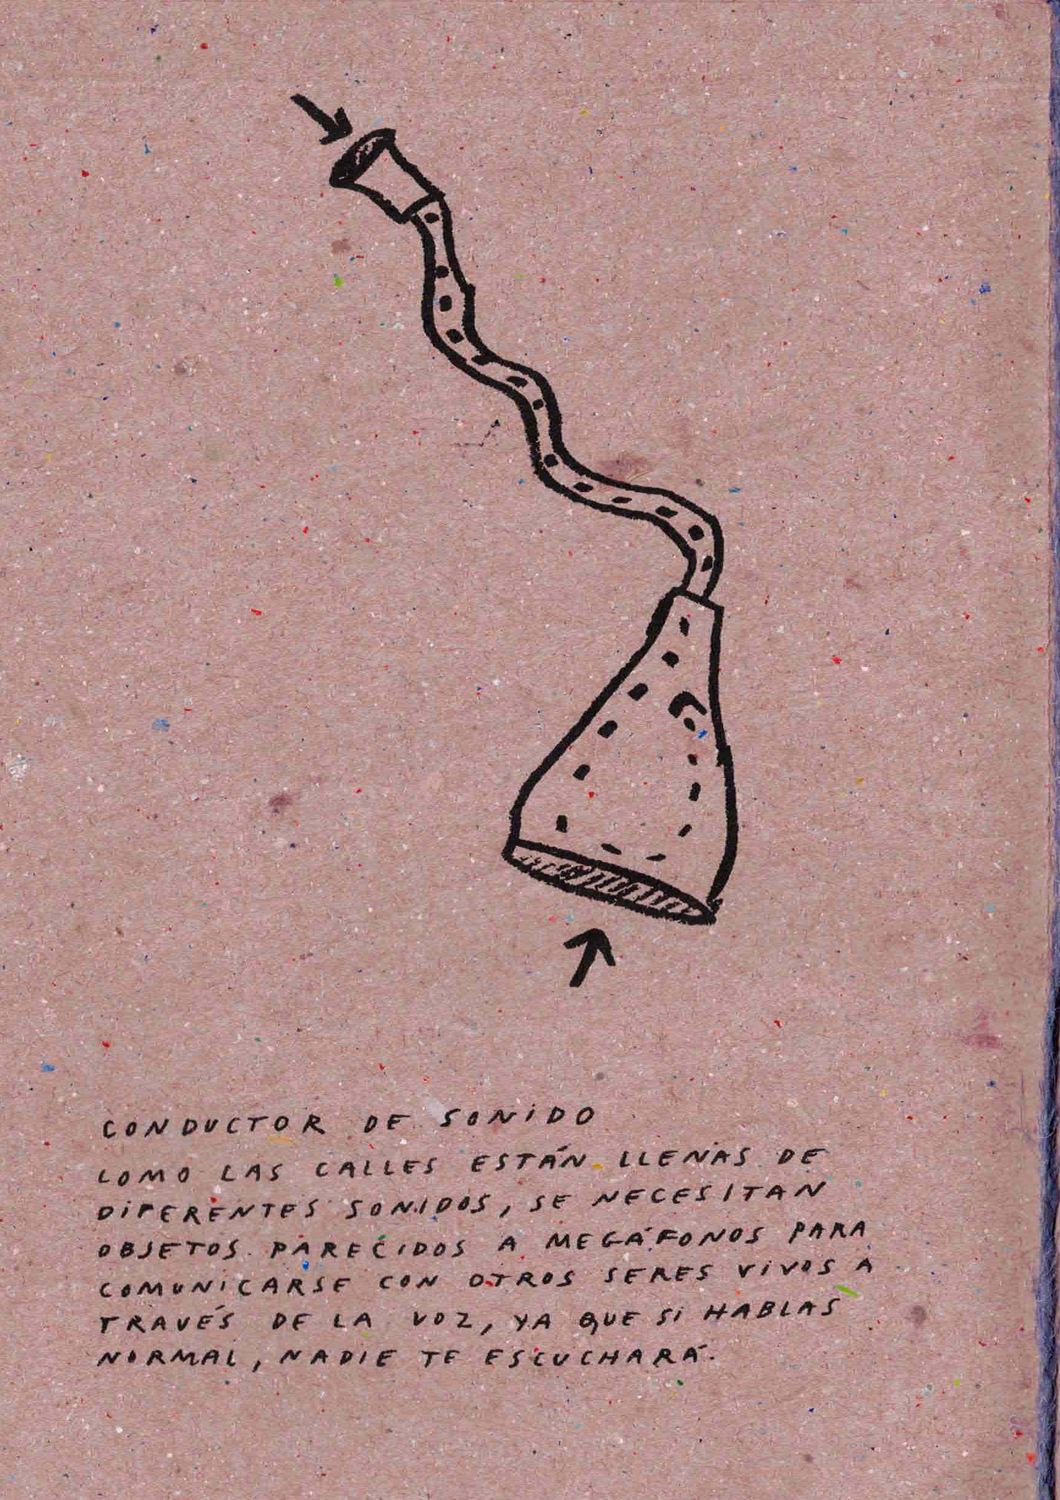 CONDUCTOR DE SONIDO
COMO LAS CALLES ESTÁN LLENAS DE
DIFERENTES SONIDOS, SE NECESITAN
OBJETOS PARECIDOS A MEGÁFONOS PARA
COMUNICARSE CON OTROS SERES VIVOS A
TRAVÉS DE LA VOZ, YA QUE SI HABLAS
NORMAL, NADIE TE ESCUCHARÁ.